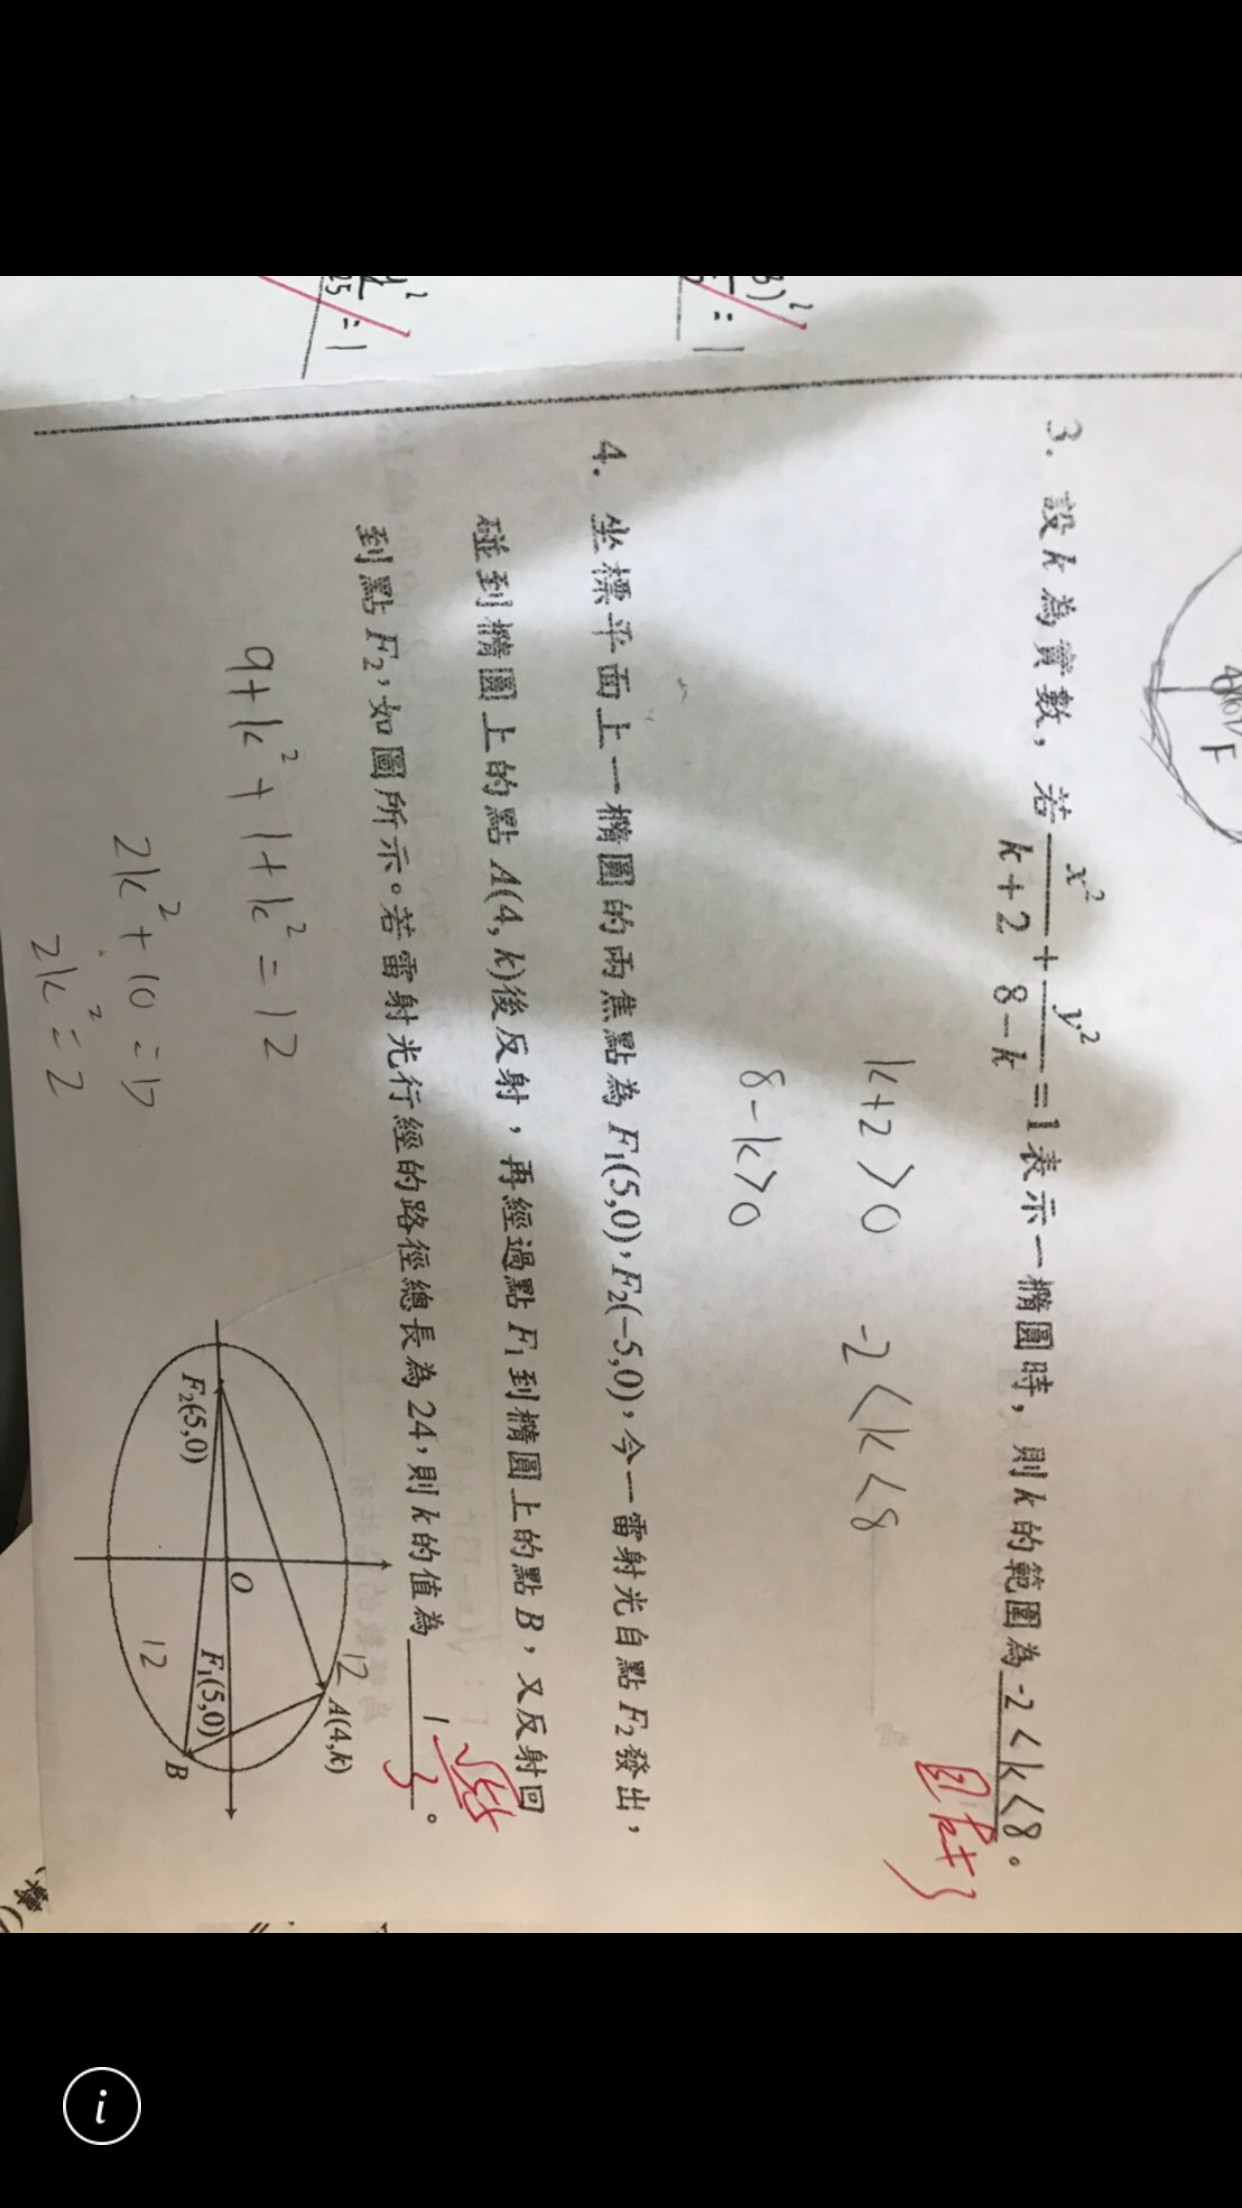 3. 設 k 為實數，若 x²/(k+2) + y²/(8-k) = 1 表示一橢圓時，則 k 的範圍為 -2<k<8 。
k+2>0 -2<k<8
8-k>0
4. 坐標平面上一橢圓的兩焦點為 F₁(5,0)，F₂(−5,0)，今一雷射光自點 F₂ 發出，
碰到橢圓上的點 A(4, k)後反射，再經過點 F₁ 到橢圓上的點 B，又反射回
到點 F₂，如圖所示。若雷射光行經的路徑總長為 24，則 k 的值為 1 。
9+k²+1+k²=12
2k²+10=12
2k²=2
12
A(4,k)
O
F₂(-5,0)
F₁(5,0)
B
12
F
=1
25
=1
i